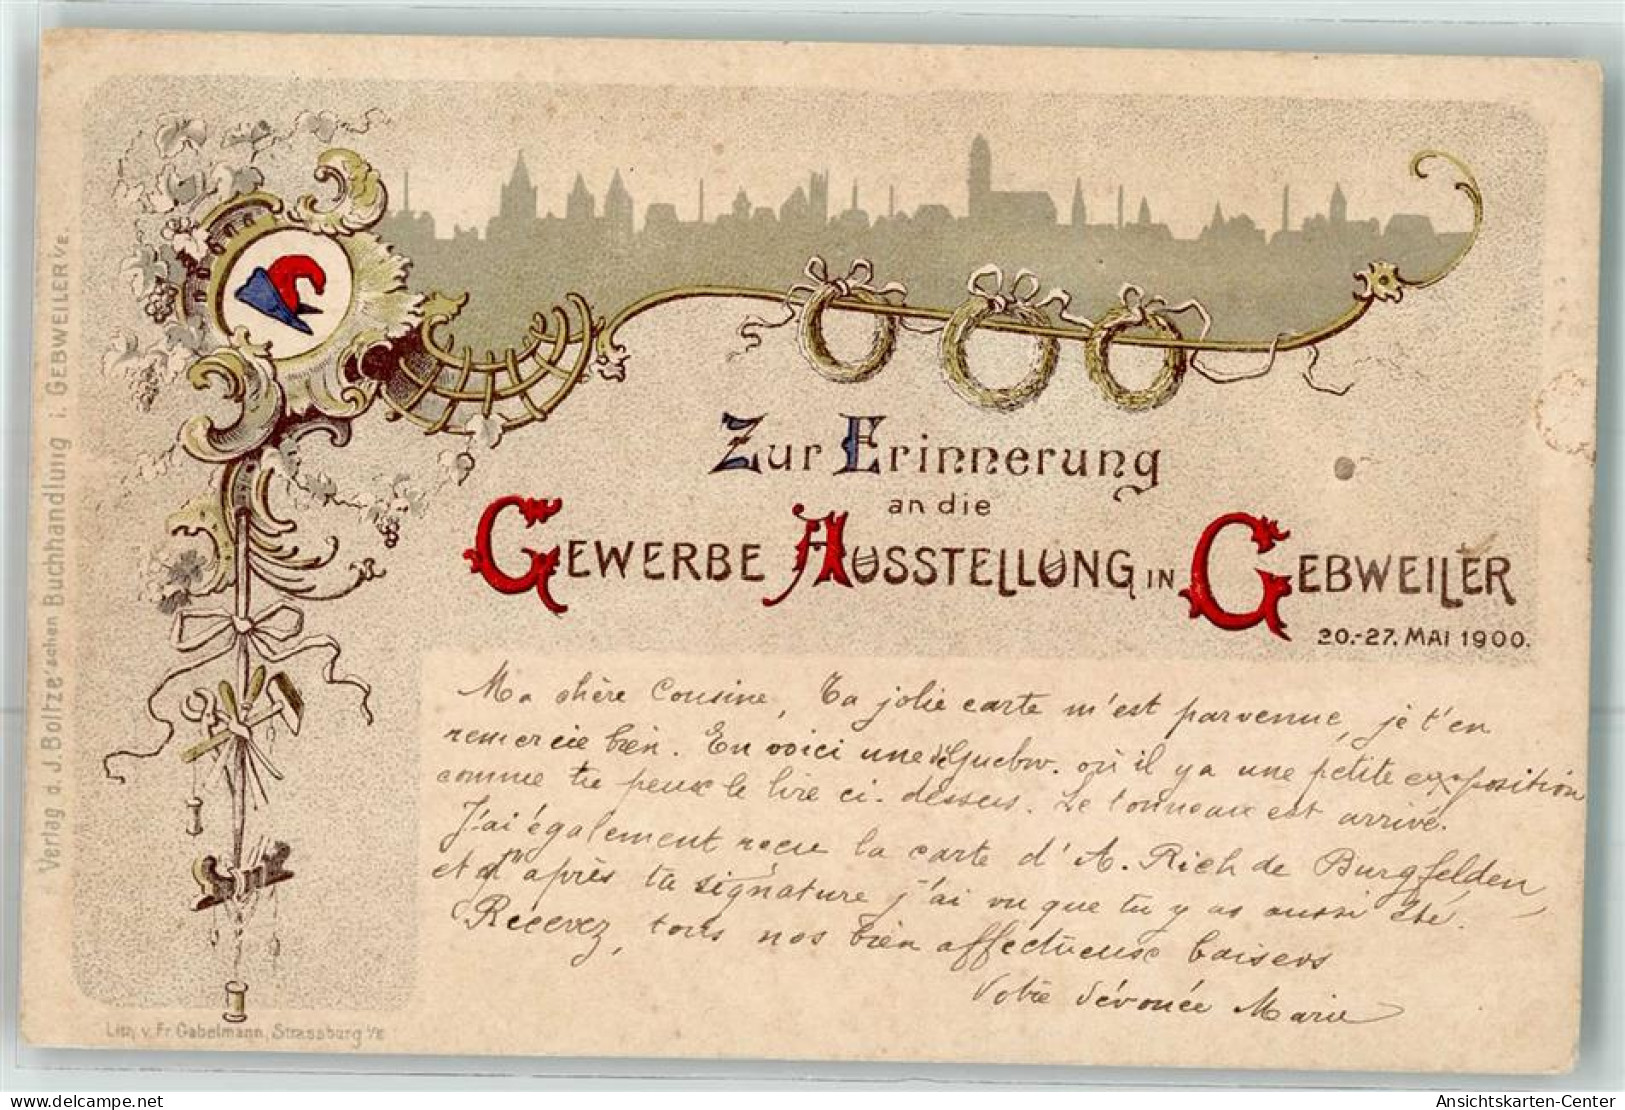 Zur Erinnerung
an die
Gewerbe Ausstellung in Gebweiler
20.-27. Mai 1900.
Ma chère Cousine, Ta jolie carte m'est parvenue, je t'en
remercie bien. En voici une de Guebw. où il y a une petite exposition
comme tu peux le lire ci-dessus. Le tonneau est arrivé.
J'ai également reçu la carte d'A. Rich de Burgfelden,
et d'après ta signature j'ai vu que tu y as aussi été.
Recevez, tous nos bien affectueux baisers
Votre dévouée Marie
Verlag d. J. Boltze schen Buchhandlung i. Gebweiler i/E.
Lith. v. Fr. Gabelmann, Strassburg i/E
www.ansichtskarten-center.de
Ansichtskarten-Center